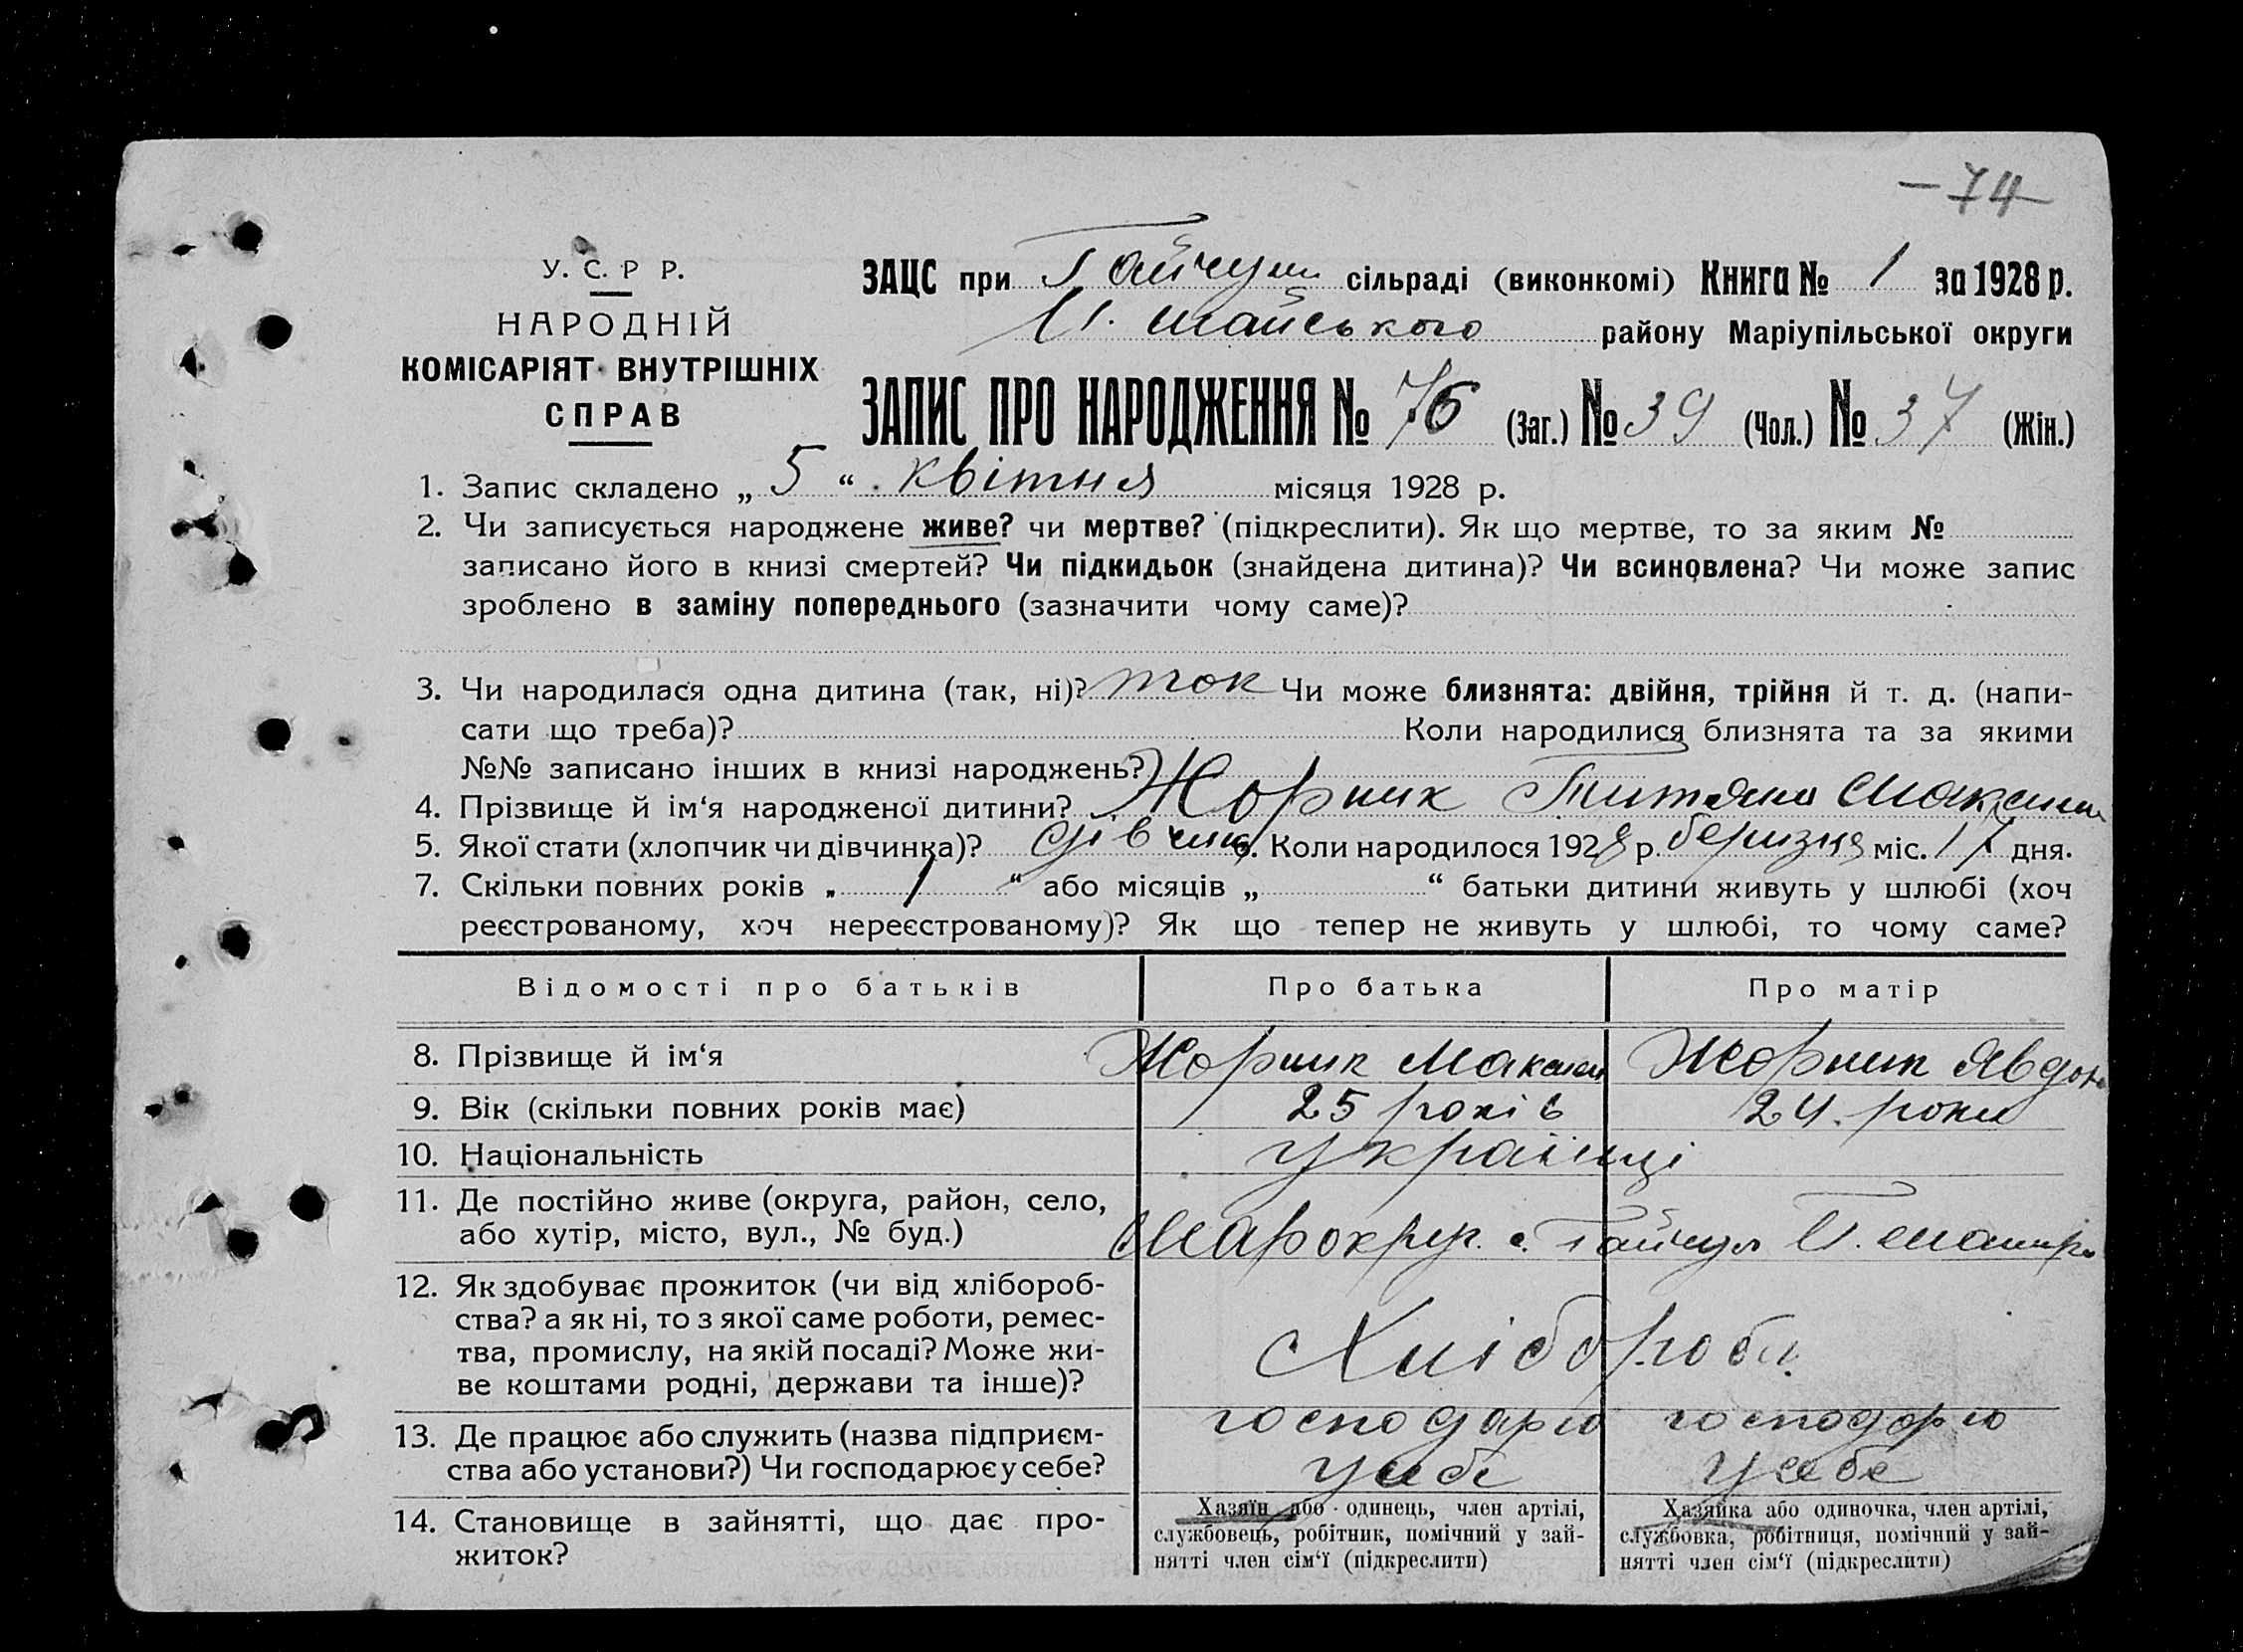 74
У. С. Р Р.
НАРОДНІЙ
КОМІСАРІЯТ ВНУТРІШНІХ
СПРАВ
ЗАЦС при Гайчул сільраді (виконкомі) Книга № 1 за 1928 р.
району Маріупільської округи
ЗАПИС ПРО НАРОДЖЕННЯ № 76 (Заг.) № 39 (Чол.) № 37 (Жін.)
1. Запис складено „ 5 “ квітня місяця 1928 р.
2. Чи записується народжене живе? чи мертве? (підкреслити). Як що мертве, то за яким №
записано його в книзі смертей? Чи підкидьок (знайдена дитина)? Чи всиновлена? Чи може запис
зроблено в заміну попереднього (зазначити чому саме)?
3. Чи народилася одна дитина (так, ні)? так Чи може близнята: двійня, трійня й т. д. (напи-
сати що треба)? Коли народилися близнята та за якими
№№ записано інших в книзі народжень?
4. Прізвище й ім‘я народженої дитини? Жорник Титяна Максим
5. Якої стати (хлопчик чи дівчинка)? дівчин 6. Коли народилося 1928 р. беризня міс. 17 дня.
7. Скільки повних років „ 1 “ або місяців „ “ батьки дитини живуть у шлюбі (хоч
реєстрованому, хоч нереєстрованому)? Як що тепер не живуть у шлюбі, то чому саме?
Відомості про батьків Про батька Про матір
8. Прізвище й ім‘я Жорник Максим Жорник Явдох
9. Вік (скільки повних років має) 25 років 24. роки
10. Національність українці
11. Де постійно живе (округа, район, село,
або хутір, місто, вул., № буд.) Марокруг. с. Гайчул
12. Як здобуває прожиток (чи від хлібороб-
ства? а як ні, то з якої саме роботи, ремес-
тва, промислу, на якій посаді? Може жи-
ве коштами родні, держави та інше)? Хлібороби
13. Де працює або служить (назва підприєм- господарю господарю
ства або установи?) Чи господарює у себе? у себе у себе
14. Становище в зайнятті, що дає про-
житок?
Хазяїн або одинець, член артілі,
службовець, робітник, помічний у зай-
нятті член сім‘ї (підкреслити)
Хазяйка або одиночка, член артілі,
службовка, робітниця, помічний у зай-
нятті член сім‘ї (підкреслити)